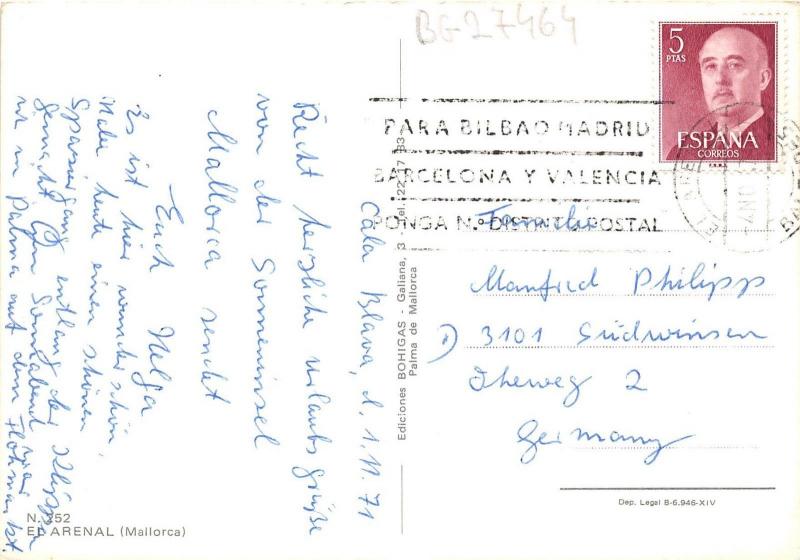 BG-27464
5
PTAS
ESPAÑA
CORREOS
F.N.M.T.
PARA BILBAO MADRID
BARCELONA Y VALENCIA
PONGA N.º DISTRITO POSTAL
EL ARENAL
Cala Blava, d. 1.11.71
Recht herzliche Urlaubsgrüße
von der Sonneninsel
Mallorca sendet
Euch Helga
Es ist hier wunderschön,
habe heute einen schönen
Spaziergang entlang der Klippen
gemacht. Am Sonnabend war
ich in Palma auf dem Flohmarkt
Familie
Manfred Philipp
D) 3101 Südwinsen
Iheweg 2
Germany
Ediciones BOHIGAS - Galiana, 3 Tel. 22 17 83
Palma de Mallorca
Dep. Legal B-6.946-XIV
N. 252
EL ARENAL (Mallorca)